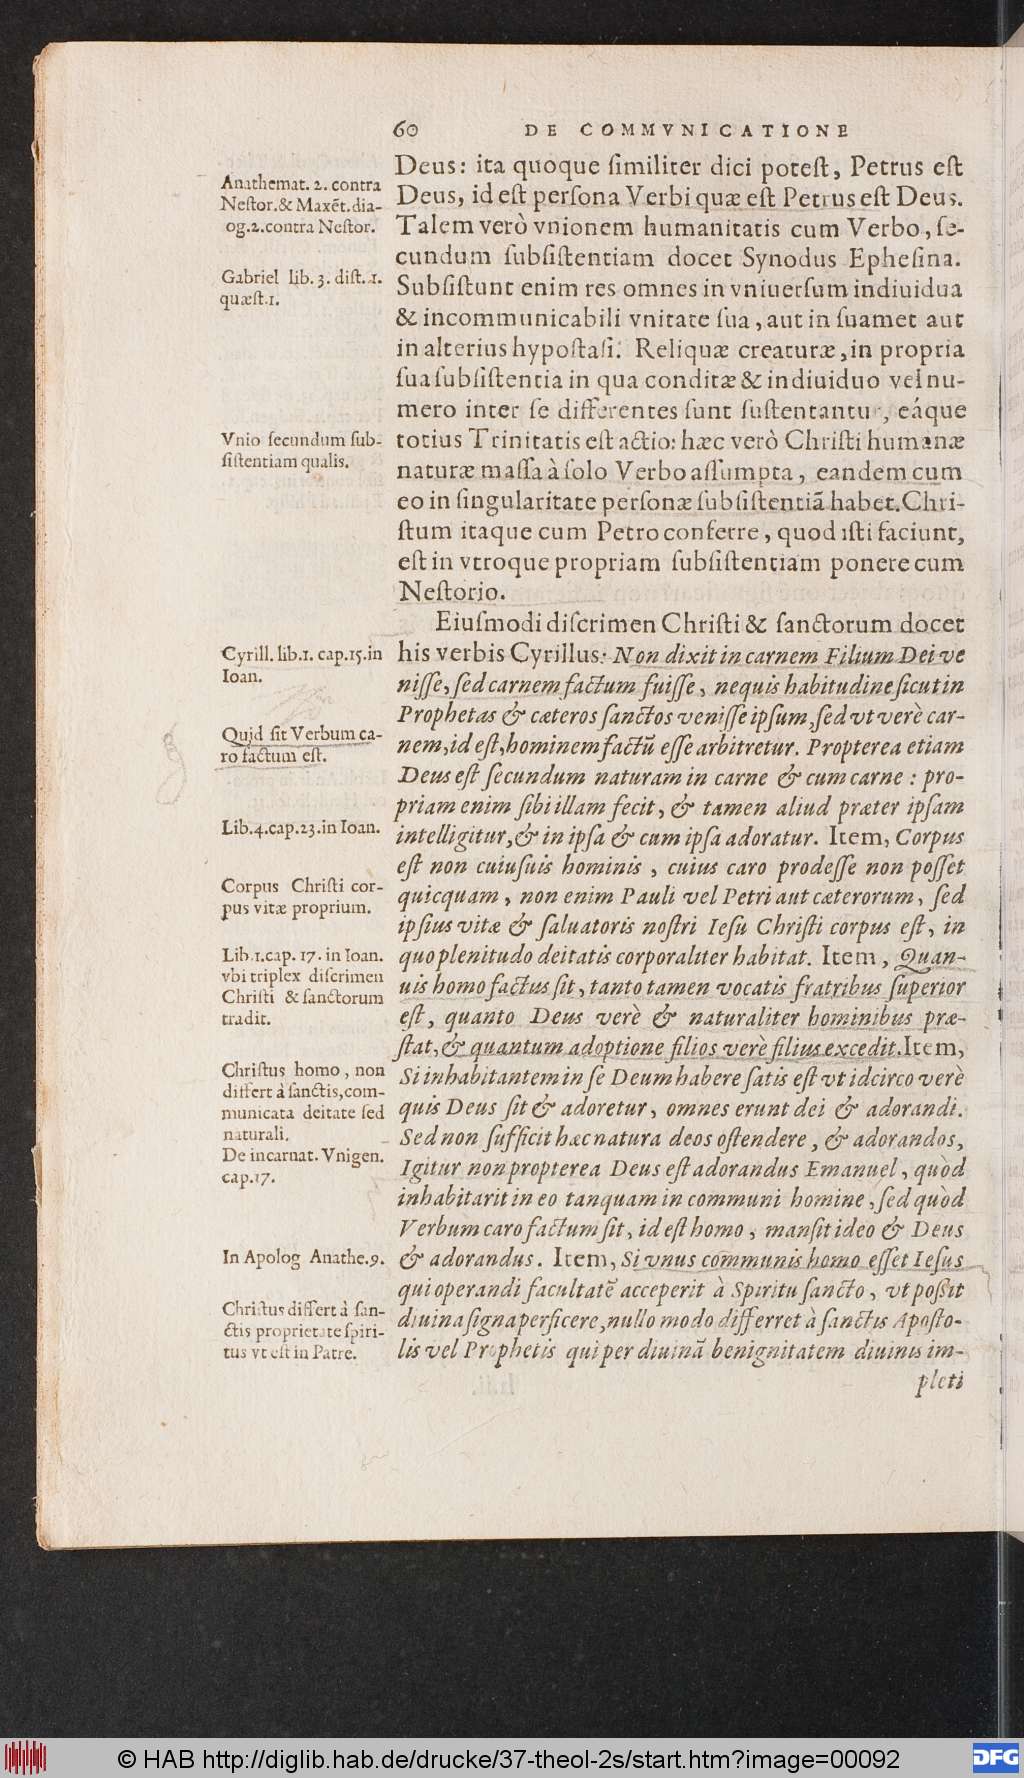 60 DE COMMVNICATIONE
Deus: ita quoque ſimiliter dici poteſt, Petrus eſt
Deus, id eſt perſona Verbi quæ eſt Petrus eſt Deus.
Talem verò vnionem humanitatis cum Verbo, ſe-
cundum ſubſiſtentiam docet Synodus Epheſina.
Subſiſtunt enim res omnes in vniuerſum indiuidua
& incommunicabili vnitate ſua, aut in ſuamet aut
in alterius hypoſtaſi. Reliquæ creaturæ, in propria
ſua ſubſiſtentia in qua conditæ & indiuiduo vel nu-
mero inter ſe differentes ſunt ſuſtentantur, eáque
totius Trinitatis eſt actio: hæc verò Chriſti humanæ
naturæ maſſa à ſolo Verbo aſſumpta, eandem cum
eo in ſingularitate perſonæ ſubſiſtentiã habet. Chri-
ſtum itaque cum Petro conferre, quod iſti faciunt,
eſt in vtroque propriam ſubſiſtentiam ponere cum
Neſtorio.
Eiuſmodi diſcrimen Chriſti & ſanctorum docet
his verbis Cyrillus: Non dixit in carnem Filium Dei ve
niſſe, ſed carnem factum fuiſſe, nequis habitudine ſicut in
Prophetas & cæteros ſanctos veniſſe ipſum, ſed vt verè car-
nem, id eſt, hominem factũ eſſe arbitretur. Propterea etiam
Deus eſt ſecundum naturam in carne & cum carne : pro-
priam enim ſibi illam fecit, & tamen aliud præter ipſam
intelligitur, & in ipſa & cum ipſa adoratur. Item, Corpus
eſt non cuiuſuis hominis, cuius caro prodeſſe non poſſet
quicquam, non enim Pauli vel Petri aut cæterorum, ſed
ipſius vitæ & ſaluatoris noſtri Ieſu Chriſti corpus eſt, in
quo plenitudo deitatis corporaliter habitat. Item, Quan-
uis homo factus ſit, tanto tamen vocatis fratribus ſuperior
eſt, quanto Deus verè & naturaliter hominibus præ-
ſtat, & quantum adoptione filios verè filius excedit. Item,
Si inhabitantem in ſe Deum habere ſatis eſt vt idcirco verè
quis Deus ſit & adoretur, omnes erunt dei & adorandi.
Sed non ſufficit hæc natura deos oſtendere, & adorandos,
Igitur non propterea Deus eſt adorandus Emanuel, quòd
inhabitarit in eo tanquam in communi homine, ſed quòd
Verbum caro factum ſit, id eſt homo, manſit ideo & Deus
& adorandus. Item, Si vnus communis homo eſſet Ieſus
qui operandi facultatẽ acceperit à Spiritu ſancto, vt poßit
diuina ſigna perficere, nullo modo differret à ſanctis Apoſto-
lis vel Prophetis qui per diuinã benignitatem diuinis im-
pleti
Anathemat. 2. contra
Neſtor. & Maxẽt. dia-
og. 2. contra Neſtor.
Gabriel lib. 3. diſt. 1.
quæſt. 1.
Vnio ſecundum ſub-
ſiſtentiam qualis.
Cyrill. lib. 1. cap. 15. in
Ioan.
Quid ſit Verbum ca-
ro factum eſt.
Lib. 4. cap. 23. in Ioan.
Corpus Chriſti cor-
pus vitæ proprium.
Lib. 1. cap. 17. in Ioan.
vbi triplex diſcrimen
Chriſti & ſanctorum
tradit.
Chriſtus homo, non
differt à ſanctis, com-
municata deitate ſed
naturali.
De incarnat. Vnigen.
cap. 17.
In Apolog Anathe. 9.
Chriſtus differt à ſan-
ctis proprietate ſpiri-
tus vt eſt in Patre.
© HAB http://diglib.hab.de/drucke/37-theol-2s/start.htm?image=00092
DFG